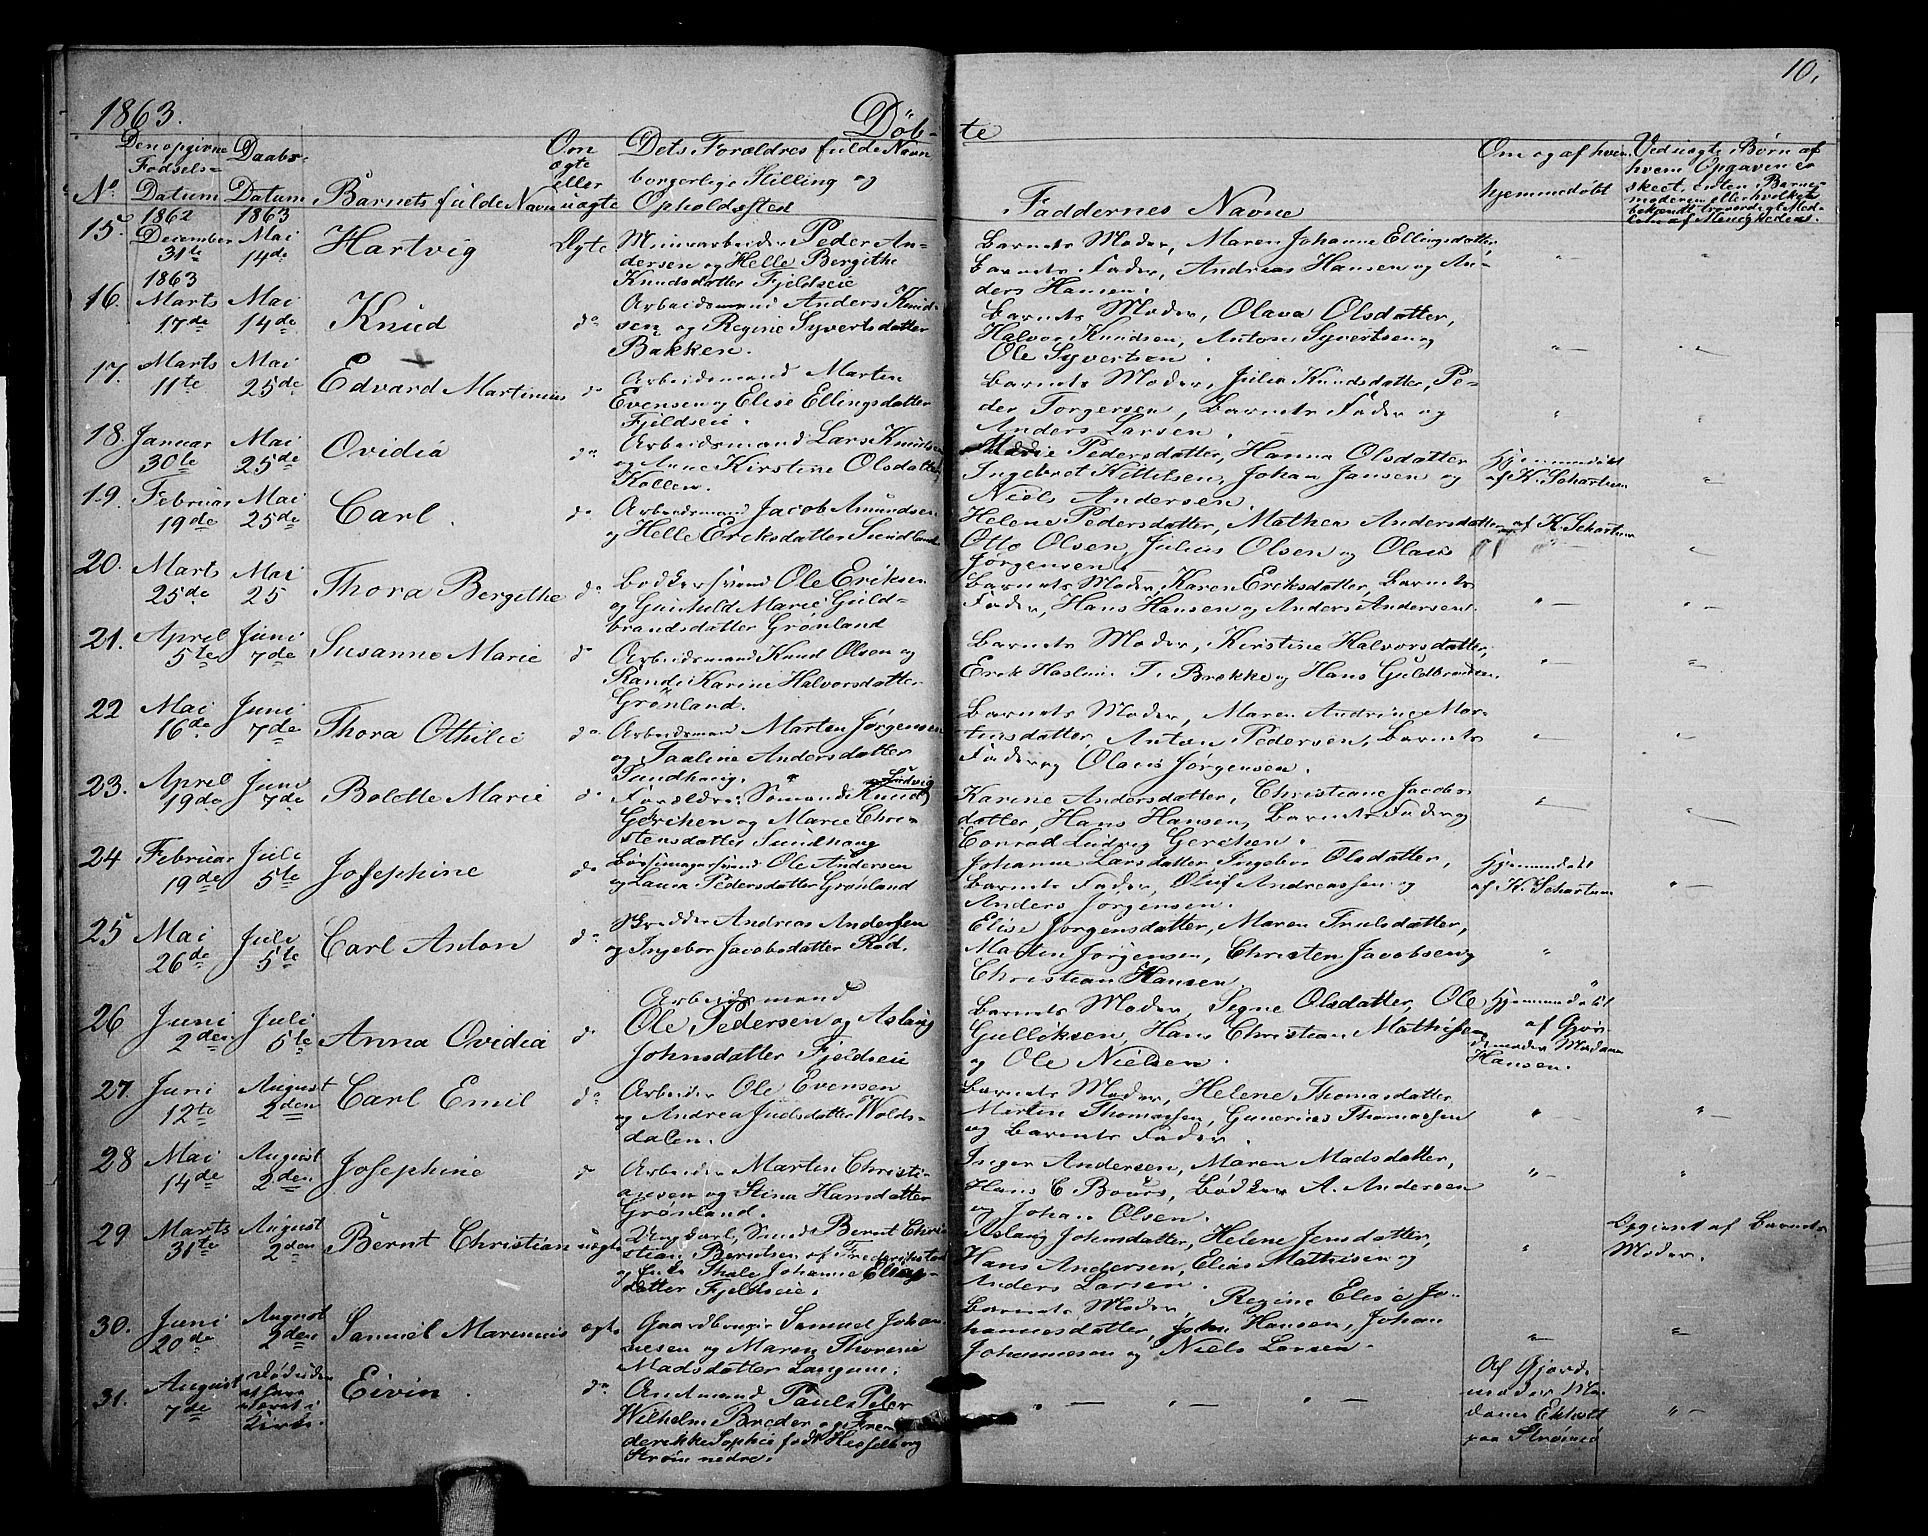 10,
1863.
Döb-
te
Den opgivne Fødsels- Datum
Daabs- Datum
Om ægte eller uægte
Dets Forældres fulde Navn
borgerlige Stilling og
Opholdssted
No
Barnets fulde Navn
Faddernes Navne
Om og af hvem
hjemmedøbt
Ved uægte Børn af
hvem Opgaven er
skeet, enten Barne-
moderen eller hvilket
bekjendt troværdigt Med-
lem af Menigheden.
15. 1862 December 31te 1863 Mai 14de Hartvig Ægte
Minearbeider Peder An-
dersen og Helle Bergithe
Knudsdatter Fjeldseie
Barnets Moder, Maren Johanne Ellingsdatter,
Barnets Fader, Andreas Hansen og An-
ders Hansen.
16. 1863 Marts 17de Mai 14de Knud do
Arbeidsmand Anders Knud-
sen og Regine Syvertsdatter
Bakken.
Barnets Moder, Olava Olsdatter,
Halvor Knudsen, Anton Syvertsen og
Ole Syvertsen.
17. Marts 11te Mai 25de Edvard Martinius do
Arbeidsmand Marten
Evensen og Elise Ellingsdatter
Fjeldseie.
Barnets Moder, Julia Knudsdatter, Pe-
der Torgersen, Barnets Fader og
Anders Larsen.
18. Januar 30te Mai 25de Ovidia do
Arbeidsmand Lars Knudsen
og Anne Kirstine Olsdatter
Kollen.
Marie Pedersdatter, Hanna Olsdatter
Ingebret Kittilsen, Johan Jansen og
Niels Andersen.
Hjemmedøbt
af K. Schartum
19. Februar 19de Mai 25de Carl. do
Arbeidsmand Jacob Amundsen
og Helle Eriksdatter Sundland
Helene Pedersdatter, Mathea Andersdatter
Otto Olsen, Julius Olsen og Olaus
Jörgensen.
af K. Schartum
20. Marts 25de Mai 25 Thora Bergithe do
Bødkersvend Ole Eriksen
og Gunhild Marie Guld-
brandsdatter Grønland
Barnets Moder, Karen Eriksdatter, Barnets
Fader, Hans Hansen og Anders Andersen.
21. April 5te Juni 7de Susanne Marie do
Arbeidsmand Knud Olsen og
Randi Karine Halvorsdatter
Grønland.
Barnets Moder, Kirstine Halvorsdatter,
Erik Haslum T. Brekke og Hans Guldbrandsen.
22 Mai 16de Juni 7de Thora Othilie do
Arbeidsmand Marten Jørgensen
og Pauline Andersdatter
Sundhaug.
Barnets Moder, Maren Andrine Mor-
tensdatter, Anton Pedersen, Barnets
Fader og Olaus Jørgensen.
23. April 19de Juni 7de Bolette Marie do
Forældre: Sømand Knud Ludvig
Gercken og Marie Chri-
stensdatter Sundhaug
Karine Andersdatter, Christiane Jacobs-
datter, Hans Hansen, Barnets Fader og
Conrad Ludvig Gercken.
24 Februar 19de Juli 5te Josephine do
Børsemagersvend Ole Andersen
og Laura Pedersdatter Grønland
Johanne Larsdatter, Ingebor Olsdatter,
Barnets Fader, Oluf Andreassen og
Anders Jørgensen.
Hjemmedøbt
af K. Schartum
25 Mai 26de Juli 5te Carl Anton do
Skrædder Andreas Andersen
og Ingebor Jacobsdatter Rød.
Elise Jørgensdatter, Maren Trulsdatter,
Martin Jørgensen, Christen Jacobsen og
Christian Hansen.
26 Juni 2den Juli 5te Anna Ovidia do
Arbeidsmand
Ole Pedersen og Aslaug
Johnsdatter Fjeldseie
Barnets Moder, Signe Olsdatter, Ole
Gulliksen, Hans Christian Mathisen
og Ole Nielsen.
Hjemmedøbt
af Gjor-
demoder Madam
Hansen.
27. Juni 12te August 2den Carl Emil do
Arbeider Ole Evensen
og Andrea Juelsdatter Wolds-
dalen.
Barnets Moder, Helene Thomasdatter
Martin Thomassen, Gunerius Thomassen
og Barnets Fader.
28 Mai 14de August 2den Josephine do
Arbeider Marten Christi-
ansen og Stina Hansdatter
Grønland.
Inger Andersen, Maren Madsdatter,
Hans C Bours, Bødker A. Andersen
og Johan Olsen.
29 Marts 31te August 2den Bernt Christian uægte
Ungkarl, Smed Bernt Chri-
stian Berntsen af Frederikstad
og Thale Johanne Ellings-
datter Fjeldseie.
Aslaug Johnsdatter, Helene Jensdatter,
Hans Andersen, Elias Mathisen og
Anders Larsen.
Opgivet af Barnets
Moder.
30. Juni 20de August 2den Samuel Marinius ægte
Gaardbruger Samuel Johan-
nesen og Maren Thorine
Madsdatter Langum.
Barnets Moder, Regine Elise Jo-
hannesdatter, John Hansen, Johan
Johannesen og Niels Larsen.
31. August 7de Død uden at have været i Kirke. Eivin. do
Amtmand Paul Peter
Wilhelm Breder og Fre-
derikke Sophie født Hesselberg
Strøm nedre.
Af Gjorde-
moder Ma-
dame Eklott
paa Strømsø